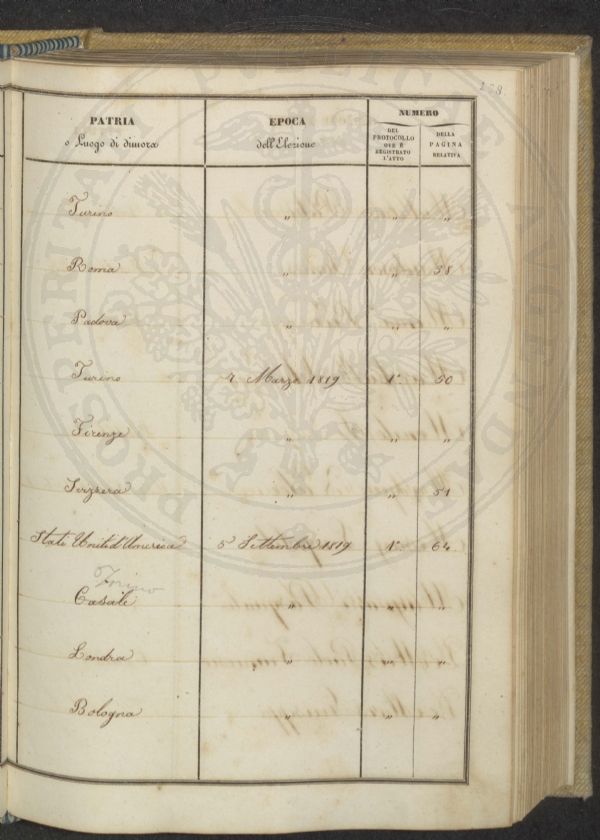 178.
PATRIA
o Luogo di dimora
EPOCA
dell'Elezione
NUMERO
DEL
PROTOCOLLO
OVE È
REGISTRATO
L'ATTO
DELLA
PAGINA
RELATIVA
Torino „ „ „
Roma „ „ 58
Padova „ „ „
Torino 7 Marzo 1819 1° 50
Firenze „ „ „
Svizzera „ „ 51
Stati Uniti d'America 5 Settembre 1819 1° 64
Torino
Casale „ „ „
Londra „ „ „
Bologna „ „ „
PROSPERITATI PUBLICAE AUGENDAE